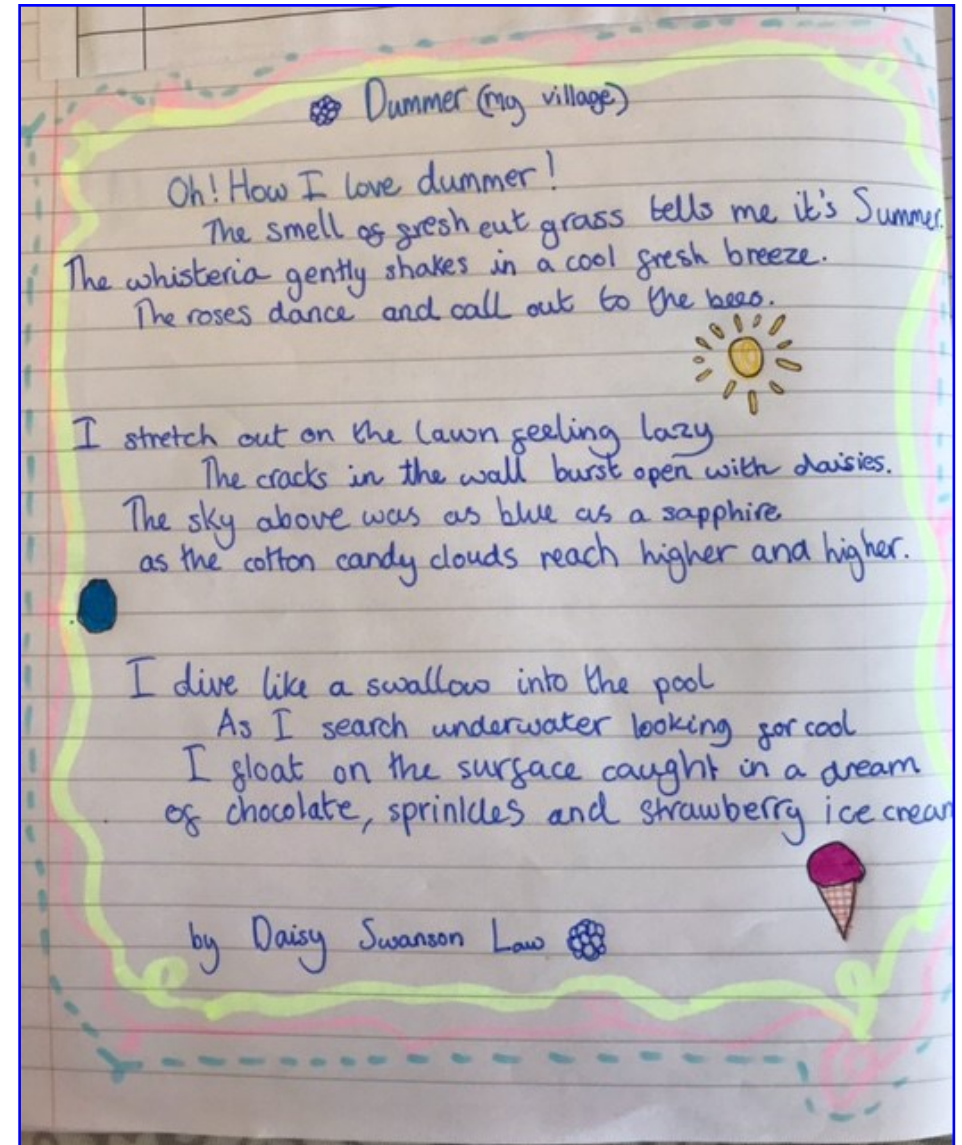 Dummer (my village)
Oh! How I love dummer!
The smell of fresh cut grass tells me it's Summer.
The whisteria gently shakes in a cool fresh breeze.
The roses dance and call out to the bees.
I stretch out on the lawn feeling lazy
The cracks in the wall burst open with daisies.
The sky above was as blue as a sapphire
as the cotton candy clouds reach higher and higher.
I dive like a swallow into the pool
As I search underwater looking for cool
I float on the surface caught in a dream
of chocolate, sprinkles and strawberry ice cream
by Daisy Swanson Law